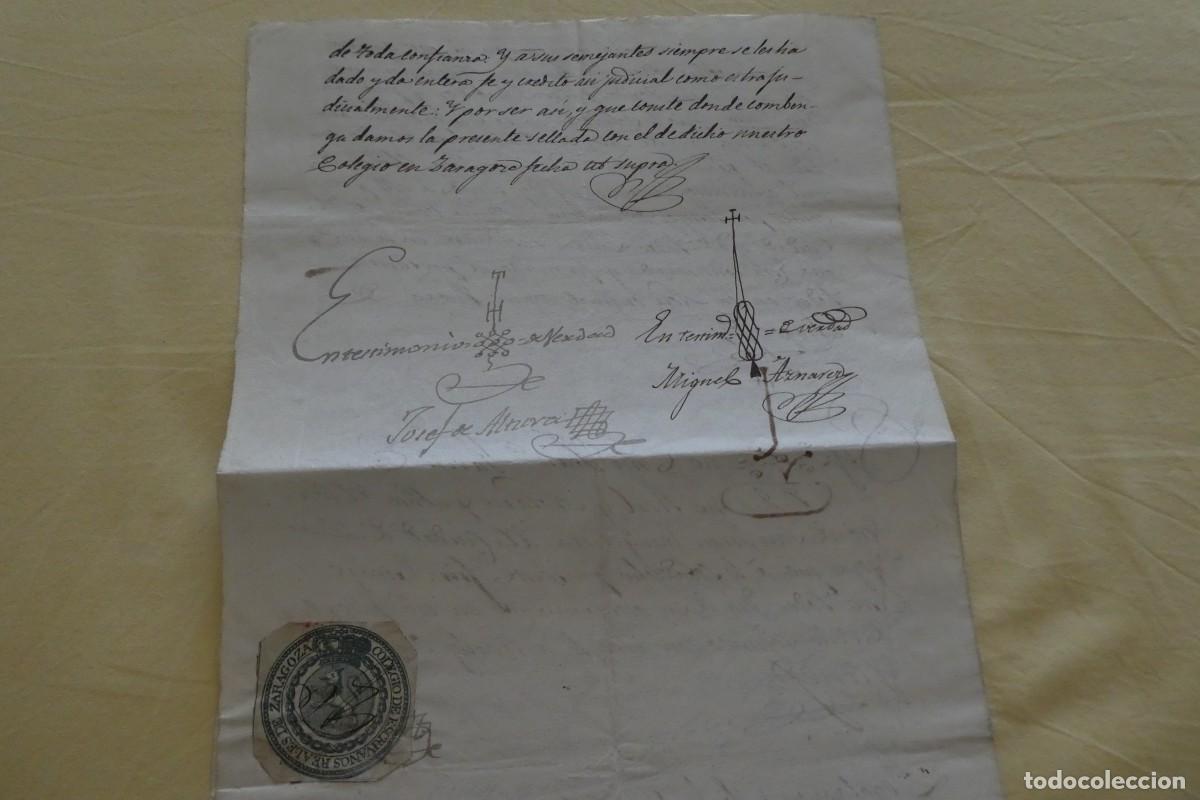 de toda confianza. Y a sus semejantes siempre se les ha
dado y da entera fe y credito asi judicial como estraju-
dicialmente: Y por ser asi, y que conste donde comben-
ga damos la presente sellada con el de dicho nuestro
Colegio en Zaragoza fecha ut supra
En testimonio de Verdad
En testim.º de verdad
Miguel Aznarez
Josef de
COLEGIO DE ESCRIVANOS REALES DE ZARAGOZA
todocoleccion